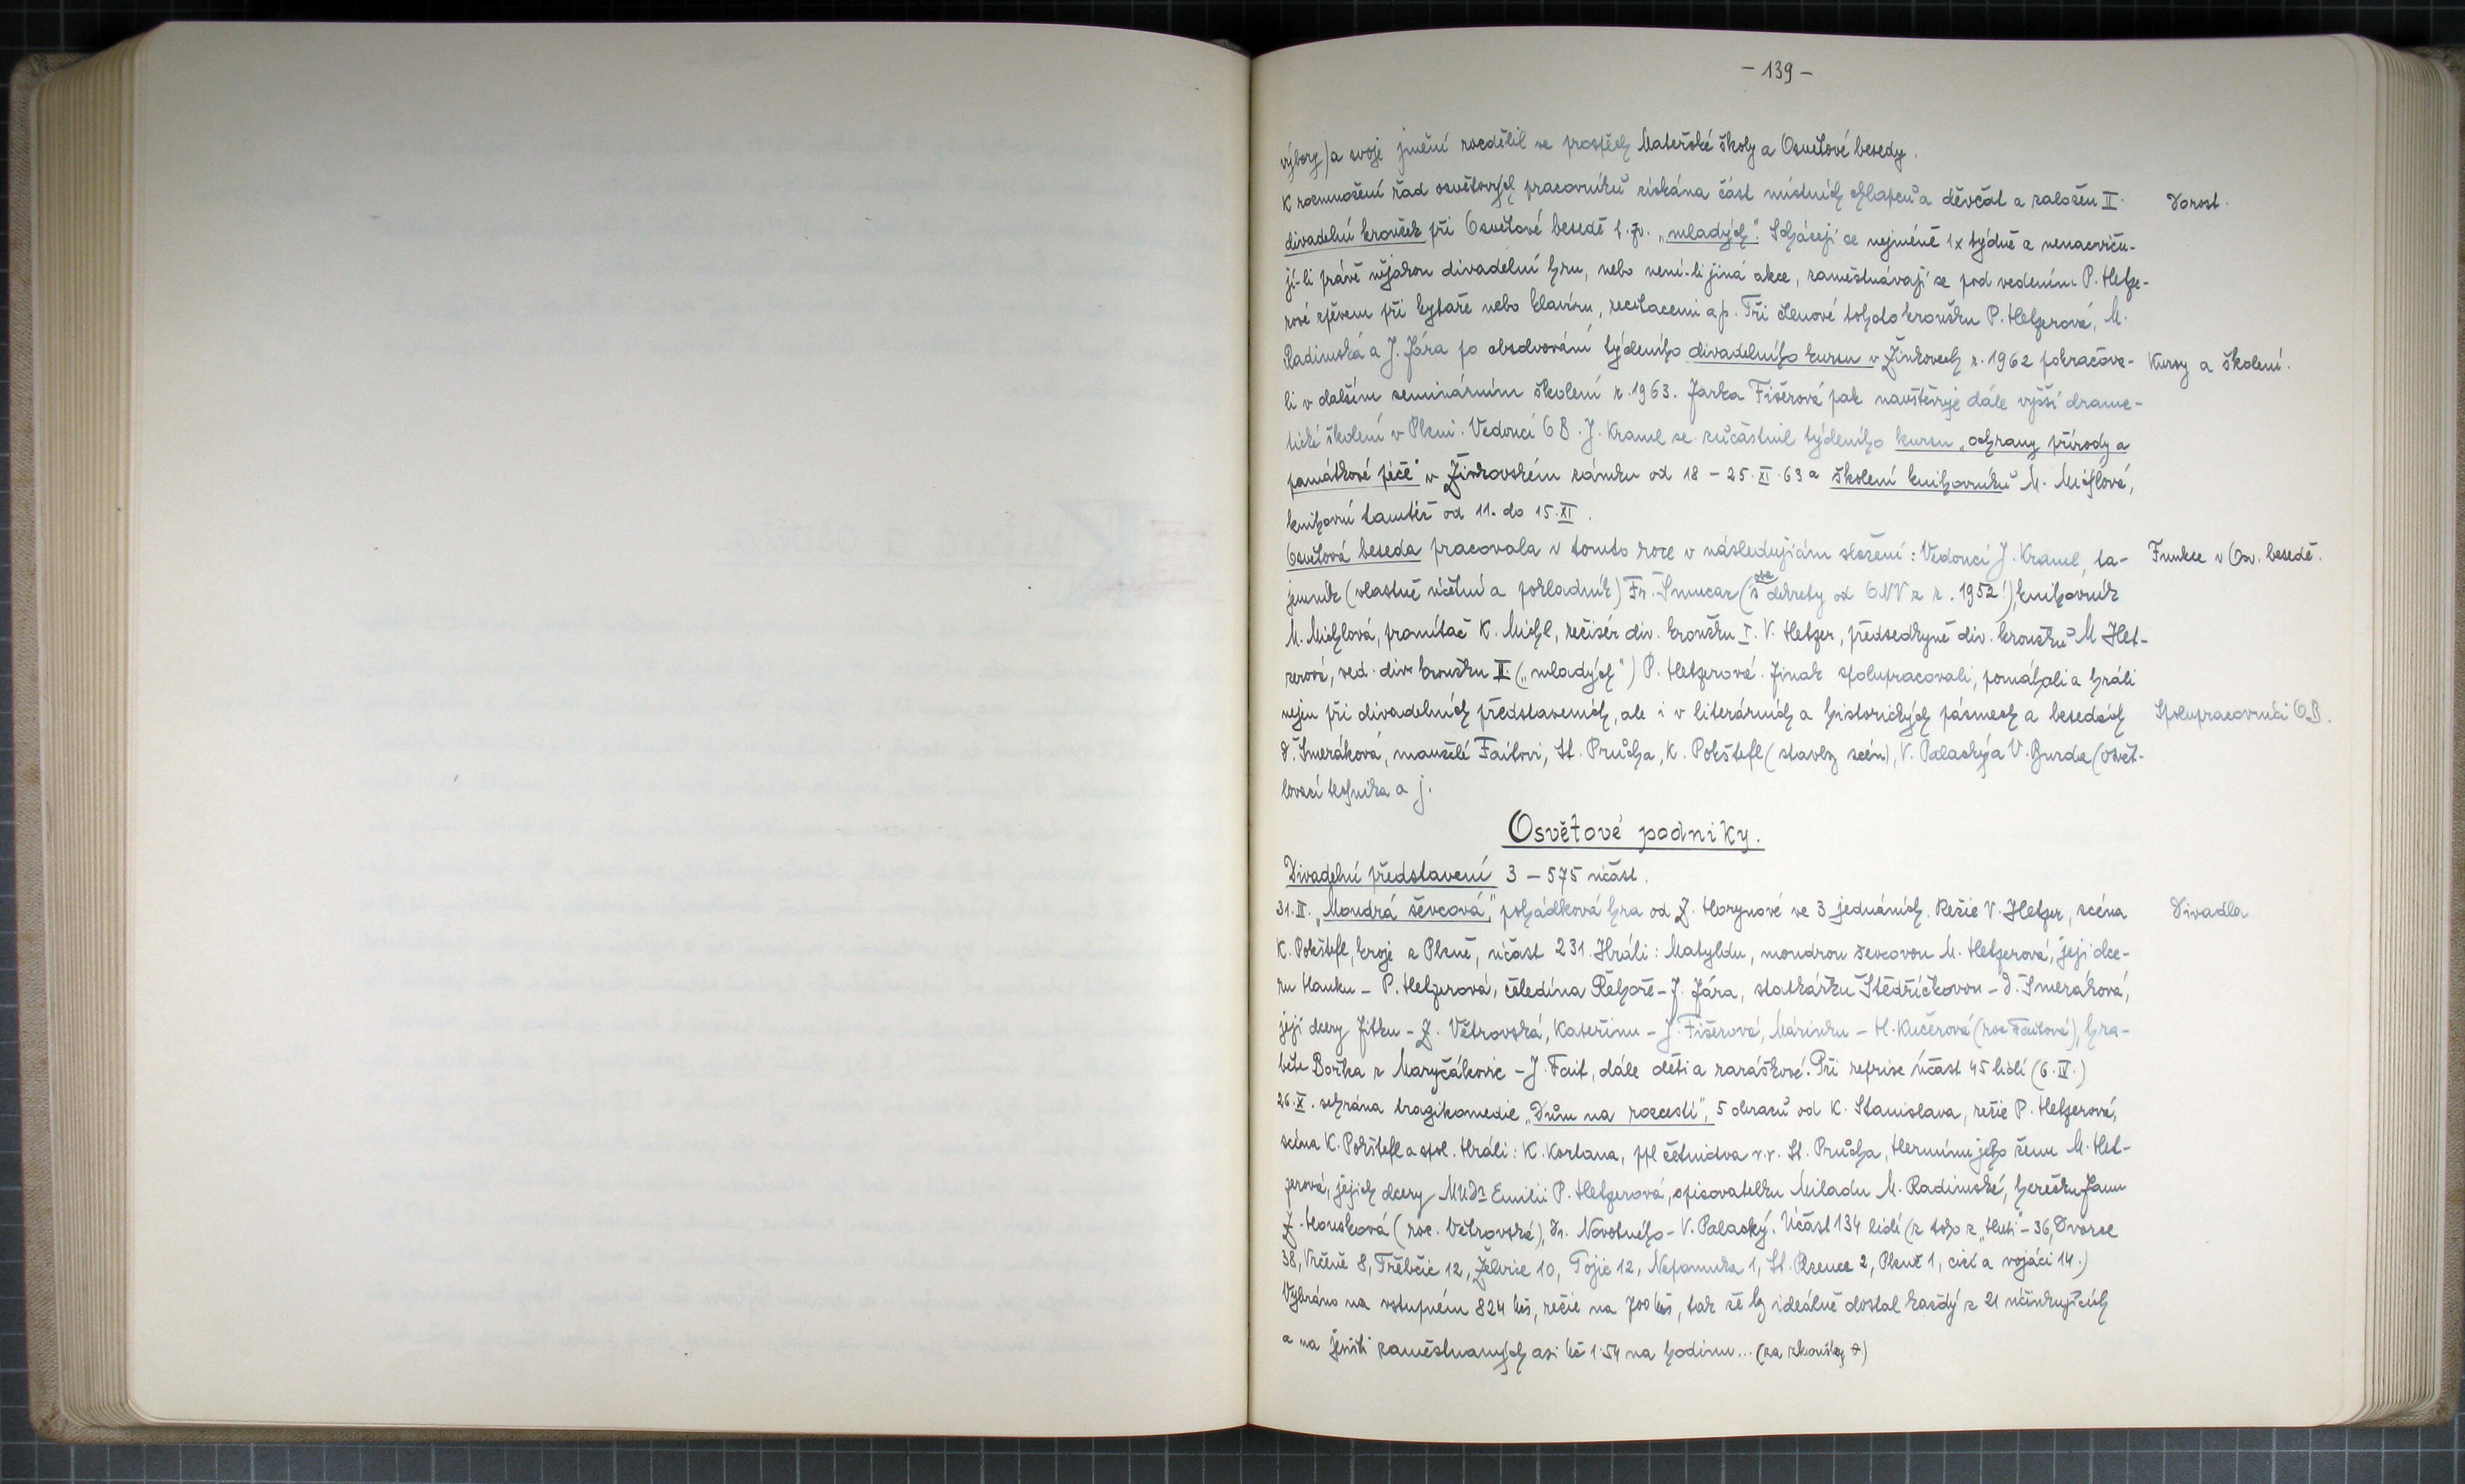 - 139 -
výbory) a svoje jmění rozdělil ve prospěch Mateřské školy a Osvětové besedy.
K rozmnožení řad osvětových pracovníků získána část místních chlapců a děvčat a založen II.
Dorost.
divadelní kroužek při Osvětové besedě t. zv. „mladých". Scházejí se nejméně 1x týdně a nenacviču-
jí-li právě nějakou divadelní hru, nebo není-li jiná akce, zaměstnávají se pod vedením P. Hetze-
rové zpěvem při kytaře nebo klavíru, recitacemi a p. Tři členové tohoto kroužku P. Hetzerová, M.
Radinská a J. Jára po absolvování týdenního divadelního kursu v Žinkovech r. 1962 pokračova-
Kursy a školení.
li v dalším seminárním školení r. 1963. Jarka Fišerová pak navštěvuje dále vyšší drama-
tické školení v Plzni. Vedoucí OB. J. Kraml se zúčastnil týdeního kursu „ochrany přírody a
památkové péče" v Žinkovském zámku od 18 - 25. XI. 63 a školení knihovníků M. Michlová,
knihovní tamtéž od 11. do 15. XI.
Osvětová beseda pracovala v tomto roce v následujícím složení: Vedoucí J. Kraml, ta-
Funkce v Osv. besedě.
jemník (vlastně účetní a pokladník) Fr. Smucar (s dekrety od ONV z r. 1952!), knihovník
M. Michlová, promítač K. Michl, režisér div. kroužku I. V. Hetzer, předsedkyně div. kroužků M Het-
zerová, ved. div. kroužku II. („mladých") P. Hetzerová. Jinak spolupracovali, pomáhali a hráli
nejen při divadelních představeních, ale i v literárních a historických pásmech a besedách
Spolupracovníci O.B.
d. Smeráková, manželé Faitovi, St. Průcha, K. Pokštefl (stavby scén), V. Palacký a V. Burda (osvět-
lovací technika a j.
Osvětové podniky.
Divadelní představení 3 - 575 účast.
31. III. „Moudrá ševcová", pohádková hra od Z. Horynové ve 3 jednáních. Režie V. Hetzer, scéna
Divadla
K. Pokštefl, kroje z Plzně, účast 231. Hráli: Matyldu, moudrou ševcovou M. Hetzerová, její dce-
ru Hanku - P. Hetzerová, čeledína Řehoře - J. Jára, statkářku Štědříčkovou - d. Smeráková,
její dcery Jitku - Z. Větrovská, Kateřinu - J. Fišerová, Márinku - H. Kučerová (roz. Faitová), hra-
běte Bořka z Maryčákovic - J. Fait, dále děti a raráškové. Při reprise účast 45 lidí (6. IV.)
26. X. sehrána tragikomedie „Dům na rozcestí", 5 obrazů od K. Stanislava, režie P. Hetzerová,
scéna K. Pokštefl a spol. Hráli: K. Kortana, ppl četnictva v.v. St. Průcha, Hermínu jeho ženu M. Het-
zerová, jejich dcery MUDr Emilii P. Hetzerová, spisovatelku Miladu M. Radinská, herečku Janu
Z. Housková (roz. Větrovská), Dr. Novotného - V. Palacký. Účast 134 lidí (z toho z „Huti" - 36, Dvorce
38, Vrčeně 8, Třebčic 12, Želvice 10, Tojic 12, Nepomuka 1, St. Plzence 2, Plzně 1, cizí a vojáci 14.)
Vybráno na vstupném 824 Kčs, režie na 700 Kčs, tak že by ideálně dostal každý z 21 účinkujících
a na jevišti zaměstnaných asi Kč 1.54 na hodinu... (za zkoušky